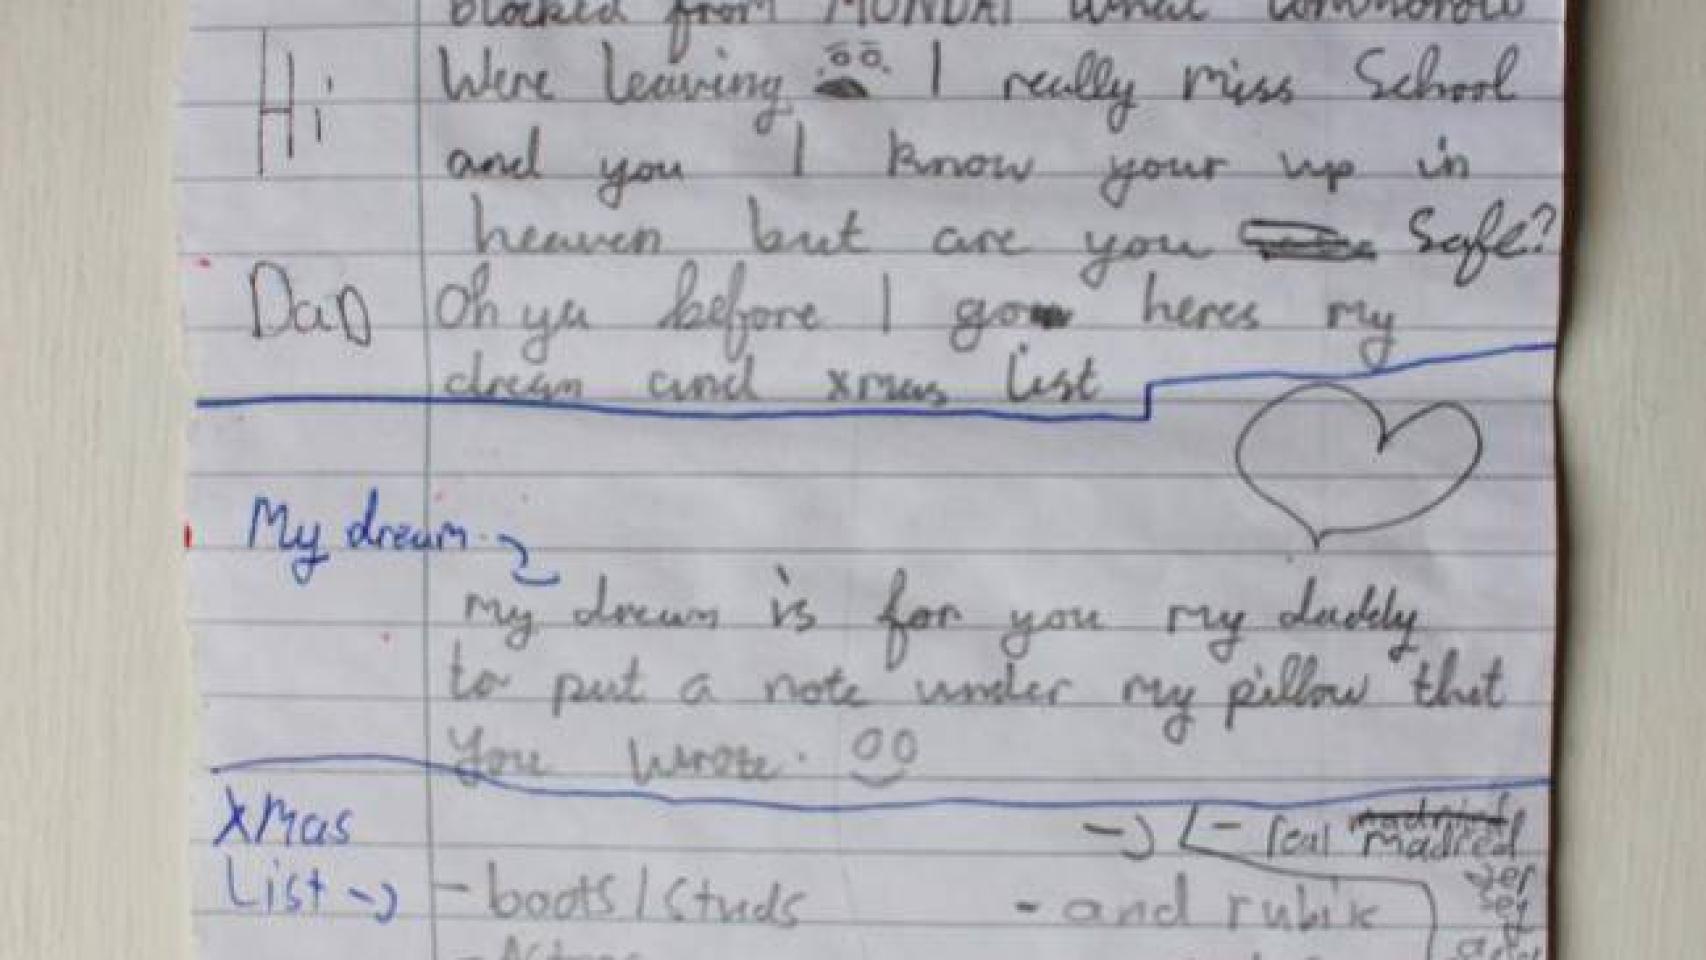 blocked from MONDAY what tommorow
Hi
Were leaving I really miss School
and you I know your up in
heaven but are you Safe?
Dad
Oh ya before I go heres my
dream and xmas list
My dream
my dream is for you my daddy
to put a note under my pillow that
you wrote.
XMas
List ->
- boots / studs
- real madred
- and rubik